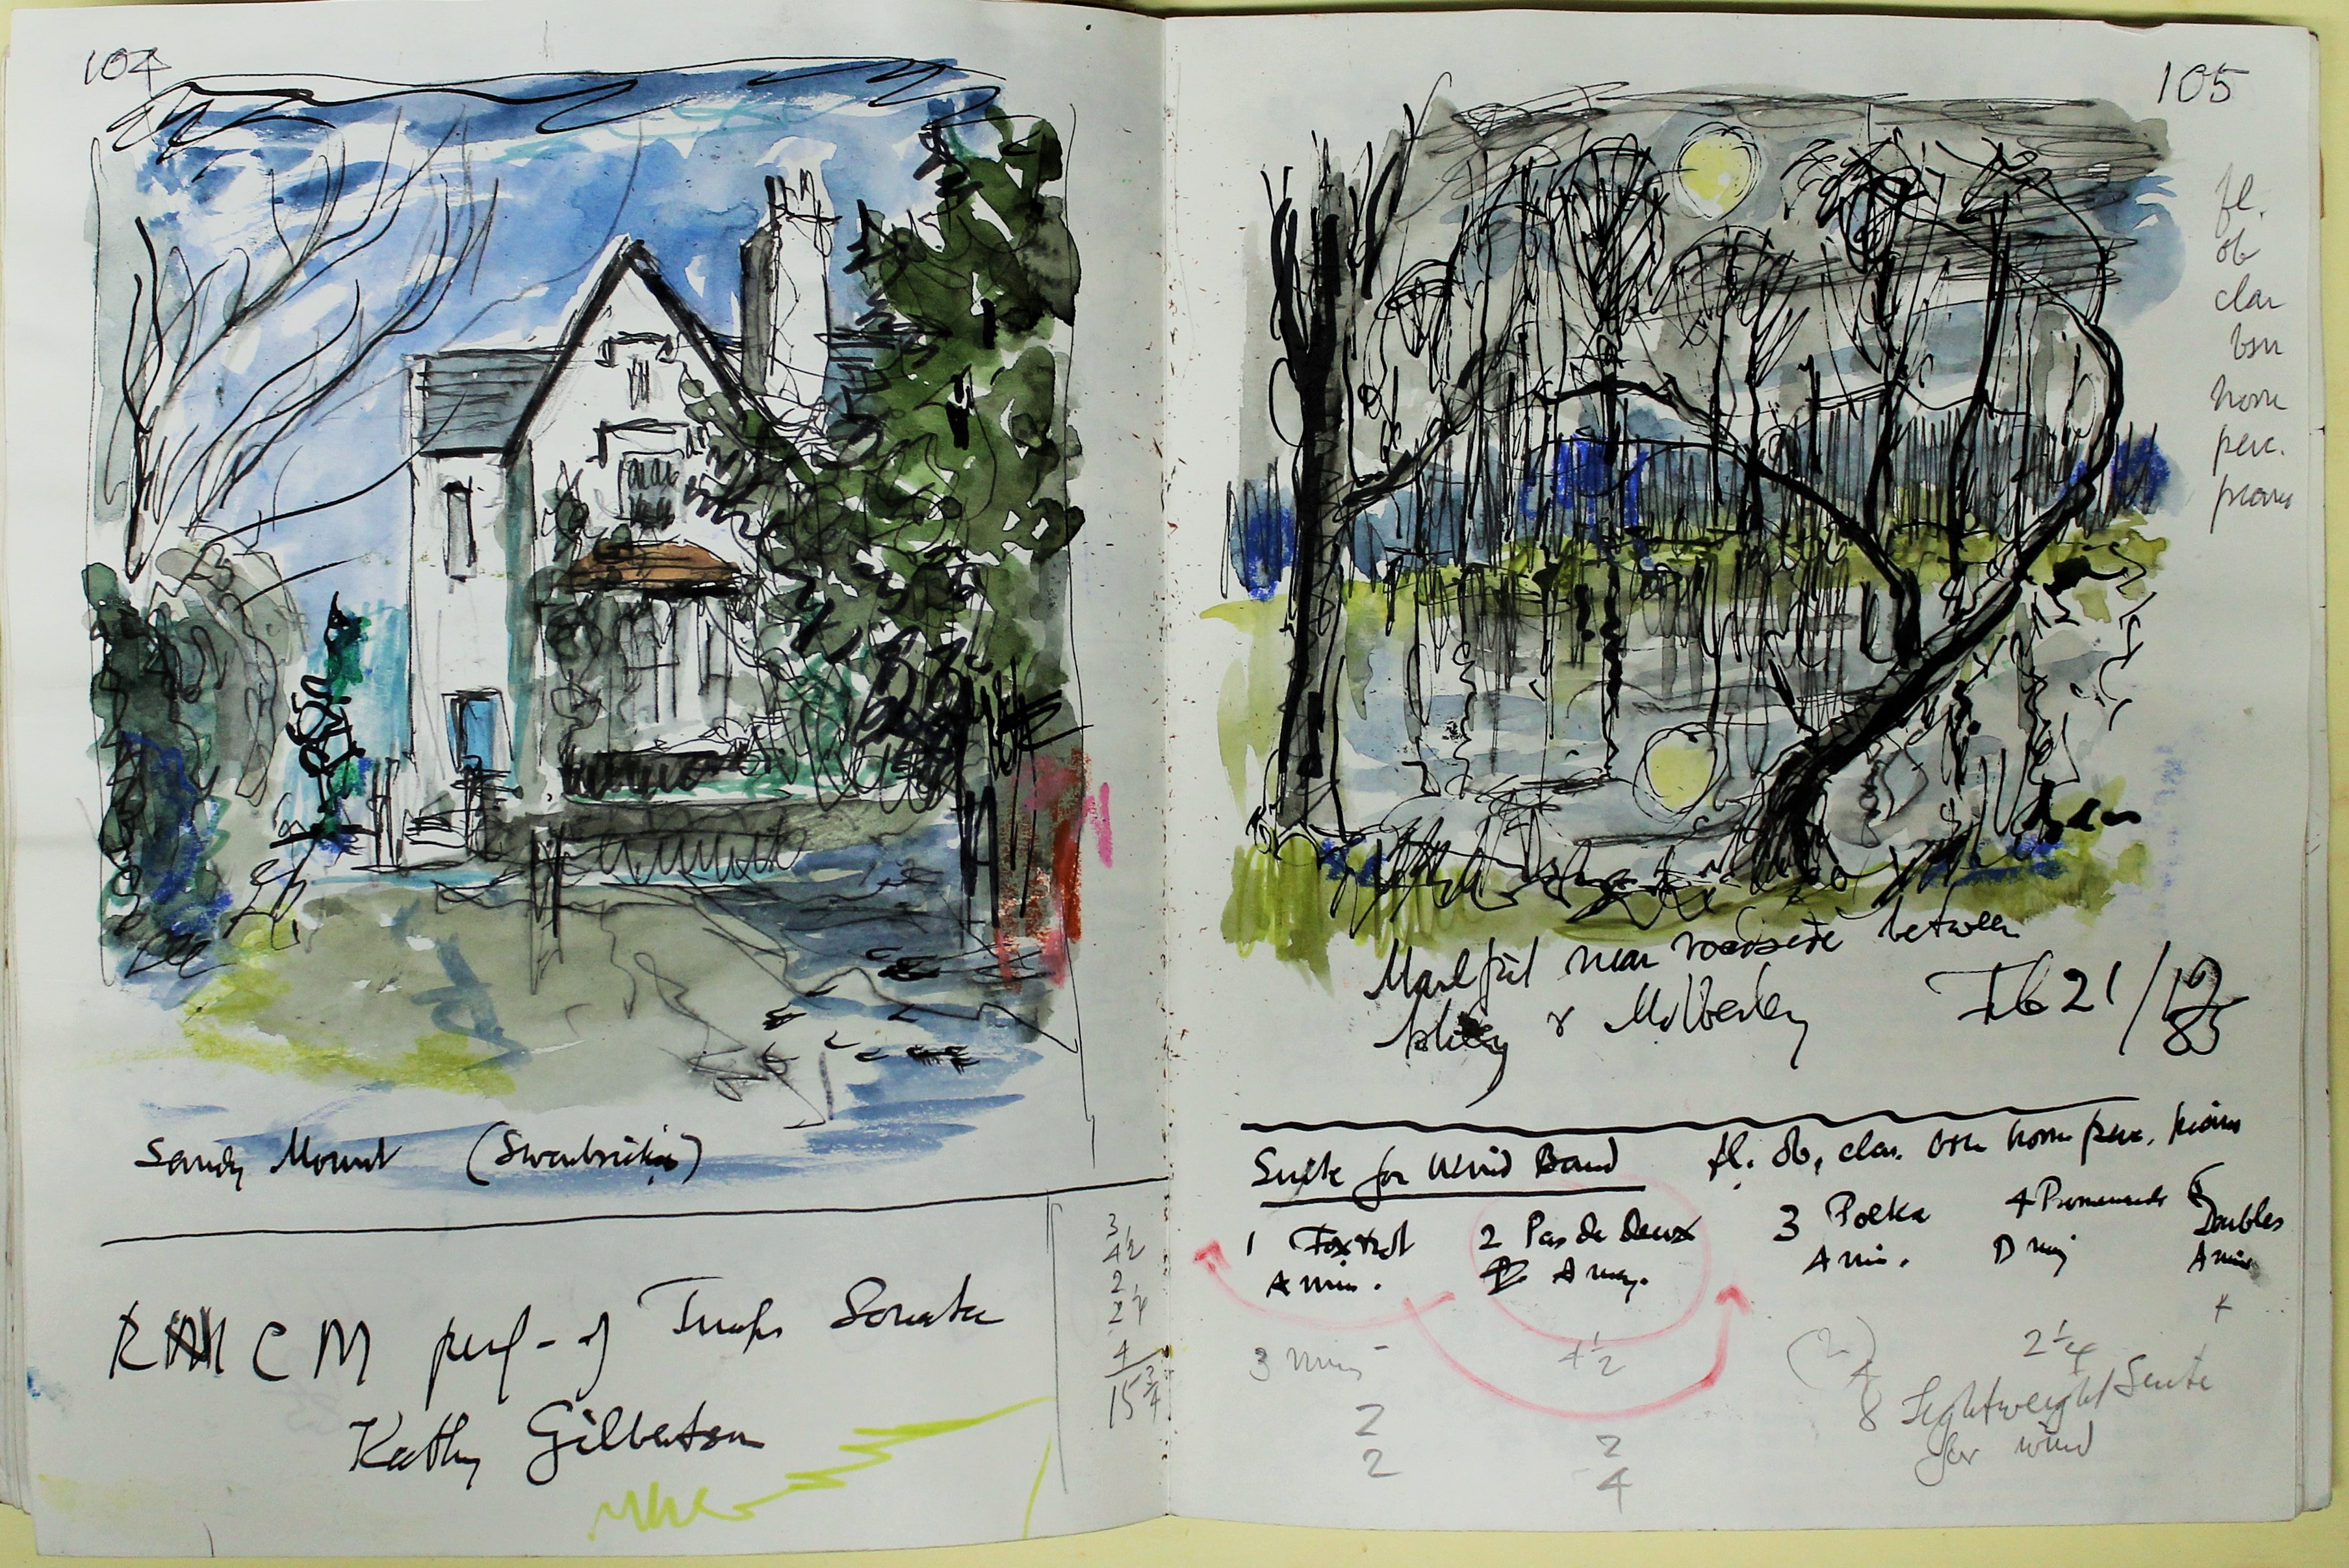 104
Sandy Mount (Swanbrick)
RNCM perf- of Trump Sonata
Kathy Gilbertson
3
4½
2
2¼
4
15¾
105
fl.
ob
clar
bsn
horn
perc.
piano
Marl pit near roadside between
& Mobberley Feb 21/19
85
Suite for Wind Band fl. ob, clar. bsn horn perc. piano
1 Foxtrot 2 Pas de Deux 3 Polka 4 Promenade 5 Doubles
A min. A maj. A min. D maj A min
3 mins 4½ (2) 2¼ 4
4
2 2 8 Lightweight Suite
2 4 for wind